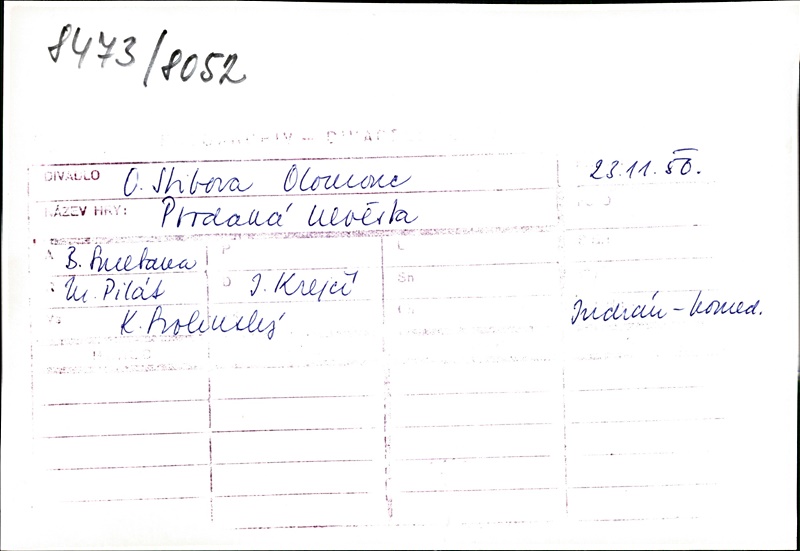 8473/8052
DIVADLO O. Stibora Olomouc 23.11.50.
NÁZEV HRY: Prodaná nevěsta
B. Smetana
M. Pilát J. Krejčí
Sn
K. Indrián - komed.